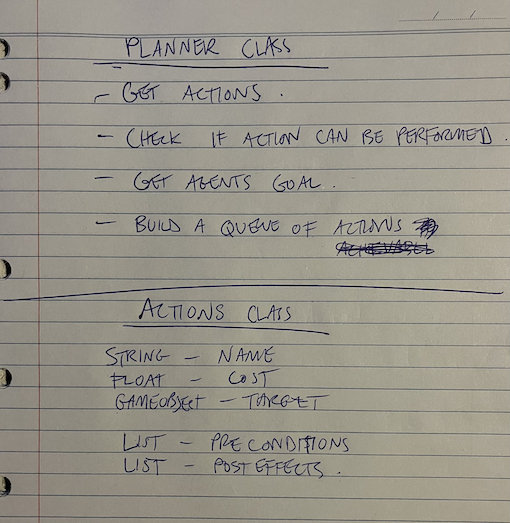 PLANNER CLASS
- GET ACTIONS.
- CHECK IF ACTION CAN BE PERFORMED.
- GET AGENTS GOAL.
- BUILD A QUEUE OF ACTIONS
ACTIONS CLASS
STRING - NAME
FLOAT - COST
GAMEOBJECT - TARGET
LIST - PRECONDITIONS
LIST - POST EFFECTS.